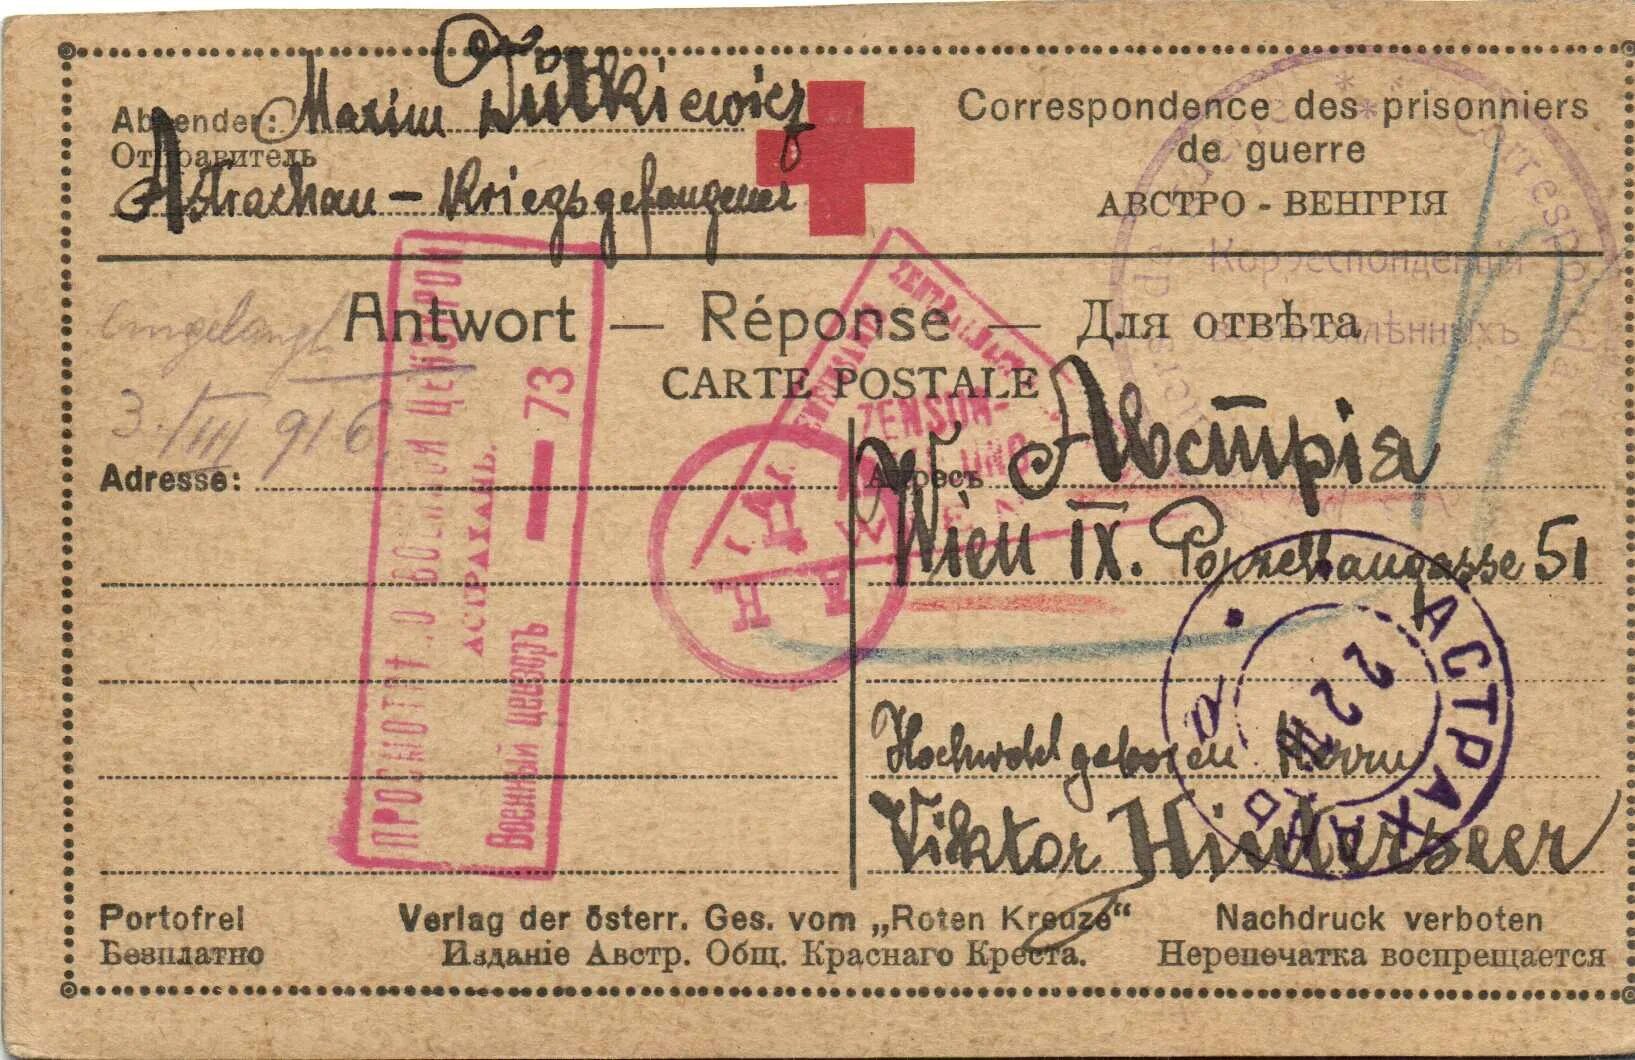 Absender: Maxim Dutkiewicz
Отправитель
Astrachan – Kriegsgefangener
Correspondence des prisonniers
de guerre
АВСТРО - ВЕНГРІЯ
Antwort — Réponse — Для отвѣта
CARTE POSTALE
eingelangt
3./III 916.
Adresse:
Адресъ
Австрія
Wien IX. Porzellangasse 51
Hochwohlgeboren Herrn
Viktor Hinterseer
ПРОСМОТРѢНО ВОЕННОЙ ЦЕНЗУРОЙ
АСТРАХАНЬ.
Военный цензоръ — 73
ZENTRALNACHWEISE
ZENSUR-
Корреспонденція
военноплѣнныхъ
АСТРАХАНЬ
22
а
Portofrei
Безплатно
Verlag der österr. Ges. vom „Roten Kreuze“
Изданіе Австр. Общ. Краснаго Креста.
Nachdruck verboten
Нерепечатка воспрещается